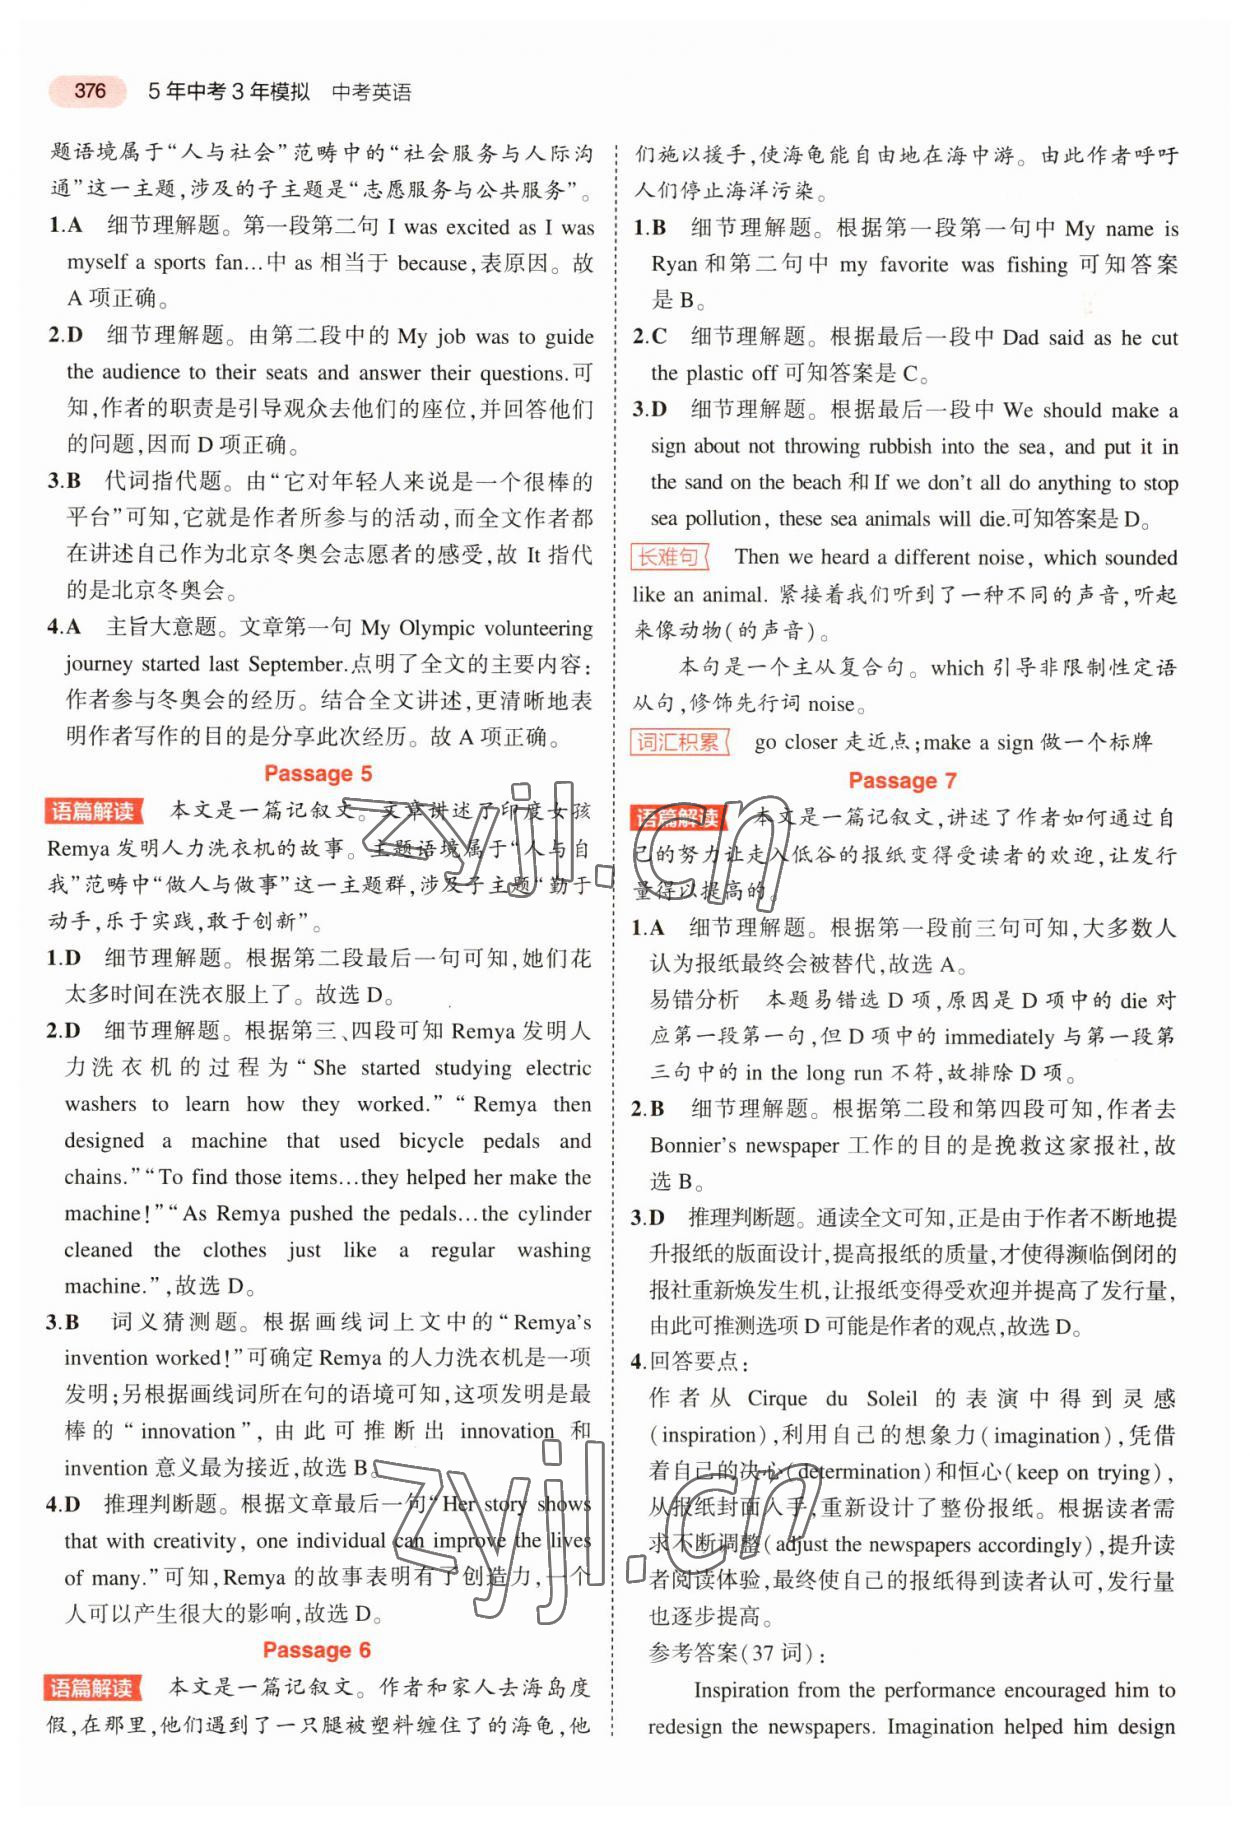 376 5年中考3年模拟 中考英语
题语境属于“人与社会”范畴中的“社会服务与人际沟
通”这一主题,涉及的子主题是“志愿服务与公共服务”。
1.A 细节理解题。第一段第二句 I was excited as I was
myself a sports fan…中 as 相当于 because,表原因。故
A 项正确。
2.D 细节理解题。由第二段中的 My job was to guide
the audience to their seats and answer their questions.可
知,作者的职责是引导观众去他们的座位,并回答他们
的问题,因而 D 项正确。
3.B 代词指代题。由“它对年轻人来说是一个很棒的
平台”可知,它就是作者所参与的活动,而全文作者都
在讲述自己作为北京冬奥会志愿者的感受,故 It 指代
的是北京冬奥会。
4.A 主旨大意题。文章第一句 My Olympic volunteering
journey started last September.点明了全文的主要内容:
作者参与冬奥会的经历。结合全文讲述,更清晰地表
明作者写作的目的是分享此次经历。故 A 项正确。
Passage 5
语篇解读 本文是一篇记叙文。文章讲述了印度女孩
Remya 发明人力洗衣机的故事。主题语境属于“人与自
我”范畴中“做人与做事”这一主题群,涉及子主题“勤于
动手,乐于实践,敢于创新”。
1.D 细节理解题。根据第二段最后一句可知,她们花
太多时间在洗衣服上了。故选 D。
2.D 细节理解题。根据第三、四段可知 Remya 发明人
力洗衣机的过程为“She started studying electric
washers to learn how they worked.”“Remya then
designed a machine that used bicycle pedals and
chains.”“To find those items…they helped her make the
machine!”“As Remya pushed the pedals…the cylinder
cleaned the clothes just like a regular washing
machine.”,故选 D。
3.B 词义猜测题。根据画线词上文中的“Remya's
invention worked!”可确定 Remya 的人力洗衣机是一项
发明;另根据画线词所在句的语境可知,这项发明是最
棒的“innovation”,由此可推断出 innovation 和
invention 意义最为接近,故选 B。
4.D 推理判断题。根据文章最后一句“Her story shows
that with creativity, one individual can improve the lives
of many.”可知,Remya 的故事表明有了创造力,一个
人可以产生很大的影响,故选 D。
Passage 6
语篇解读 本文是一篇记叙文。作者和家人去海岛度
假,在那里,他们遇到了一只腿被塑料缠住了的海龟,他
们施以援手,使海龟能自由地在海中游。由此作者呼吁
人们停止海洋污染。
1.B 细节理解题。根据第一段第一句中 My name is
Ryan 和第二句中 my favorite was fishing 可知答案
是 B。
2.C 细节理解题。根据最后一段中 Dad said as he cut
the plastic off 可知答案是 C。
3.D 细节理解题。根据最后一段中 We should make a
sign about not throwing rubbish into the sea, and put it in
the sand on the beach 和 If we don't all do anything to stop
sea pollution, these sea animals will die.可知答案是 D。
长难句 Then we heard a different noise, which sounded
like an animal. 紧接着我们听到了一种不同的声音,听起
来像动物(的声音)。
本句是一个主从复合句。which 引导非限制性定语
从句,修饰先行词 noise。
词汇积累 go closer 走近点;make a sign 做一个标牌
Passage 7
语篇解读 本文是一篇记叙文,讲述了作者如何通过自
己的努力让走入低谷的报纸变得受读者的欢迎,让发行
量得以提高的。
1.A 细节理解题。根据第一段前三句可知,大多数人
认为报纸最终会被替代,故选 A。
易错分析 本题易错选 D 项,原因是 D 项中的 die 对
应第一段第一句,但 D 项中的 immediately 与第一段第
三句中的 in the long run 不符,故排除 D 项。
2.B 细节理解题。根据第二段和第四段可知,作者去
Bonnier's newspaper 工作的目的是挽救这家报社,故
选 B。
3.D 推理判断题。通读全文可知,正是由于作者不断地提
升报纸的版面设计,提高报纸的质量,才使得濒临倒闭的
报社重新焕发生机,让报纸变得受欢迎并提高了发行量,
由此可推测选项 D 可能是作者的观点,故选 D。
4.回答要点:
作者从 Cirque du Soleil 的表演中得到灵感
(inspiration),利用自己的想象力(imagination),凭借
着自己的决心(determination)和恒心(keep on trying),
从报纸封面入手,重新设计了整份报纸。根据读者需
求不断调整(adjust the newspapers accordingly),提升读
者阅读体验,最终使自己的报纸得到读者认可,发行量
也逐步提高。
参考答案(37 词):
Inspiration from the performance encouraged him to
redesign the newspapers. Imagination helped him design
zyjl.cn
zyjl.cn